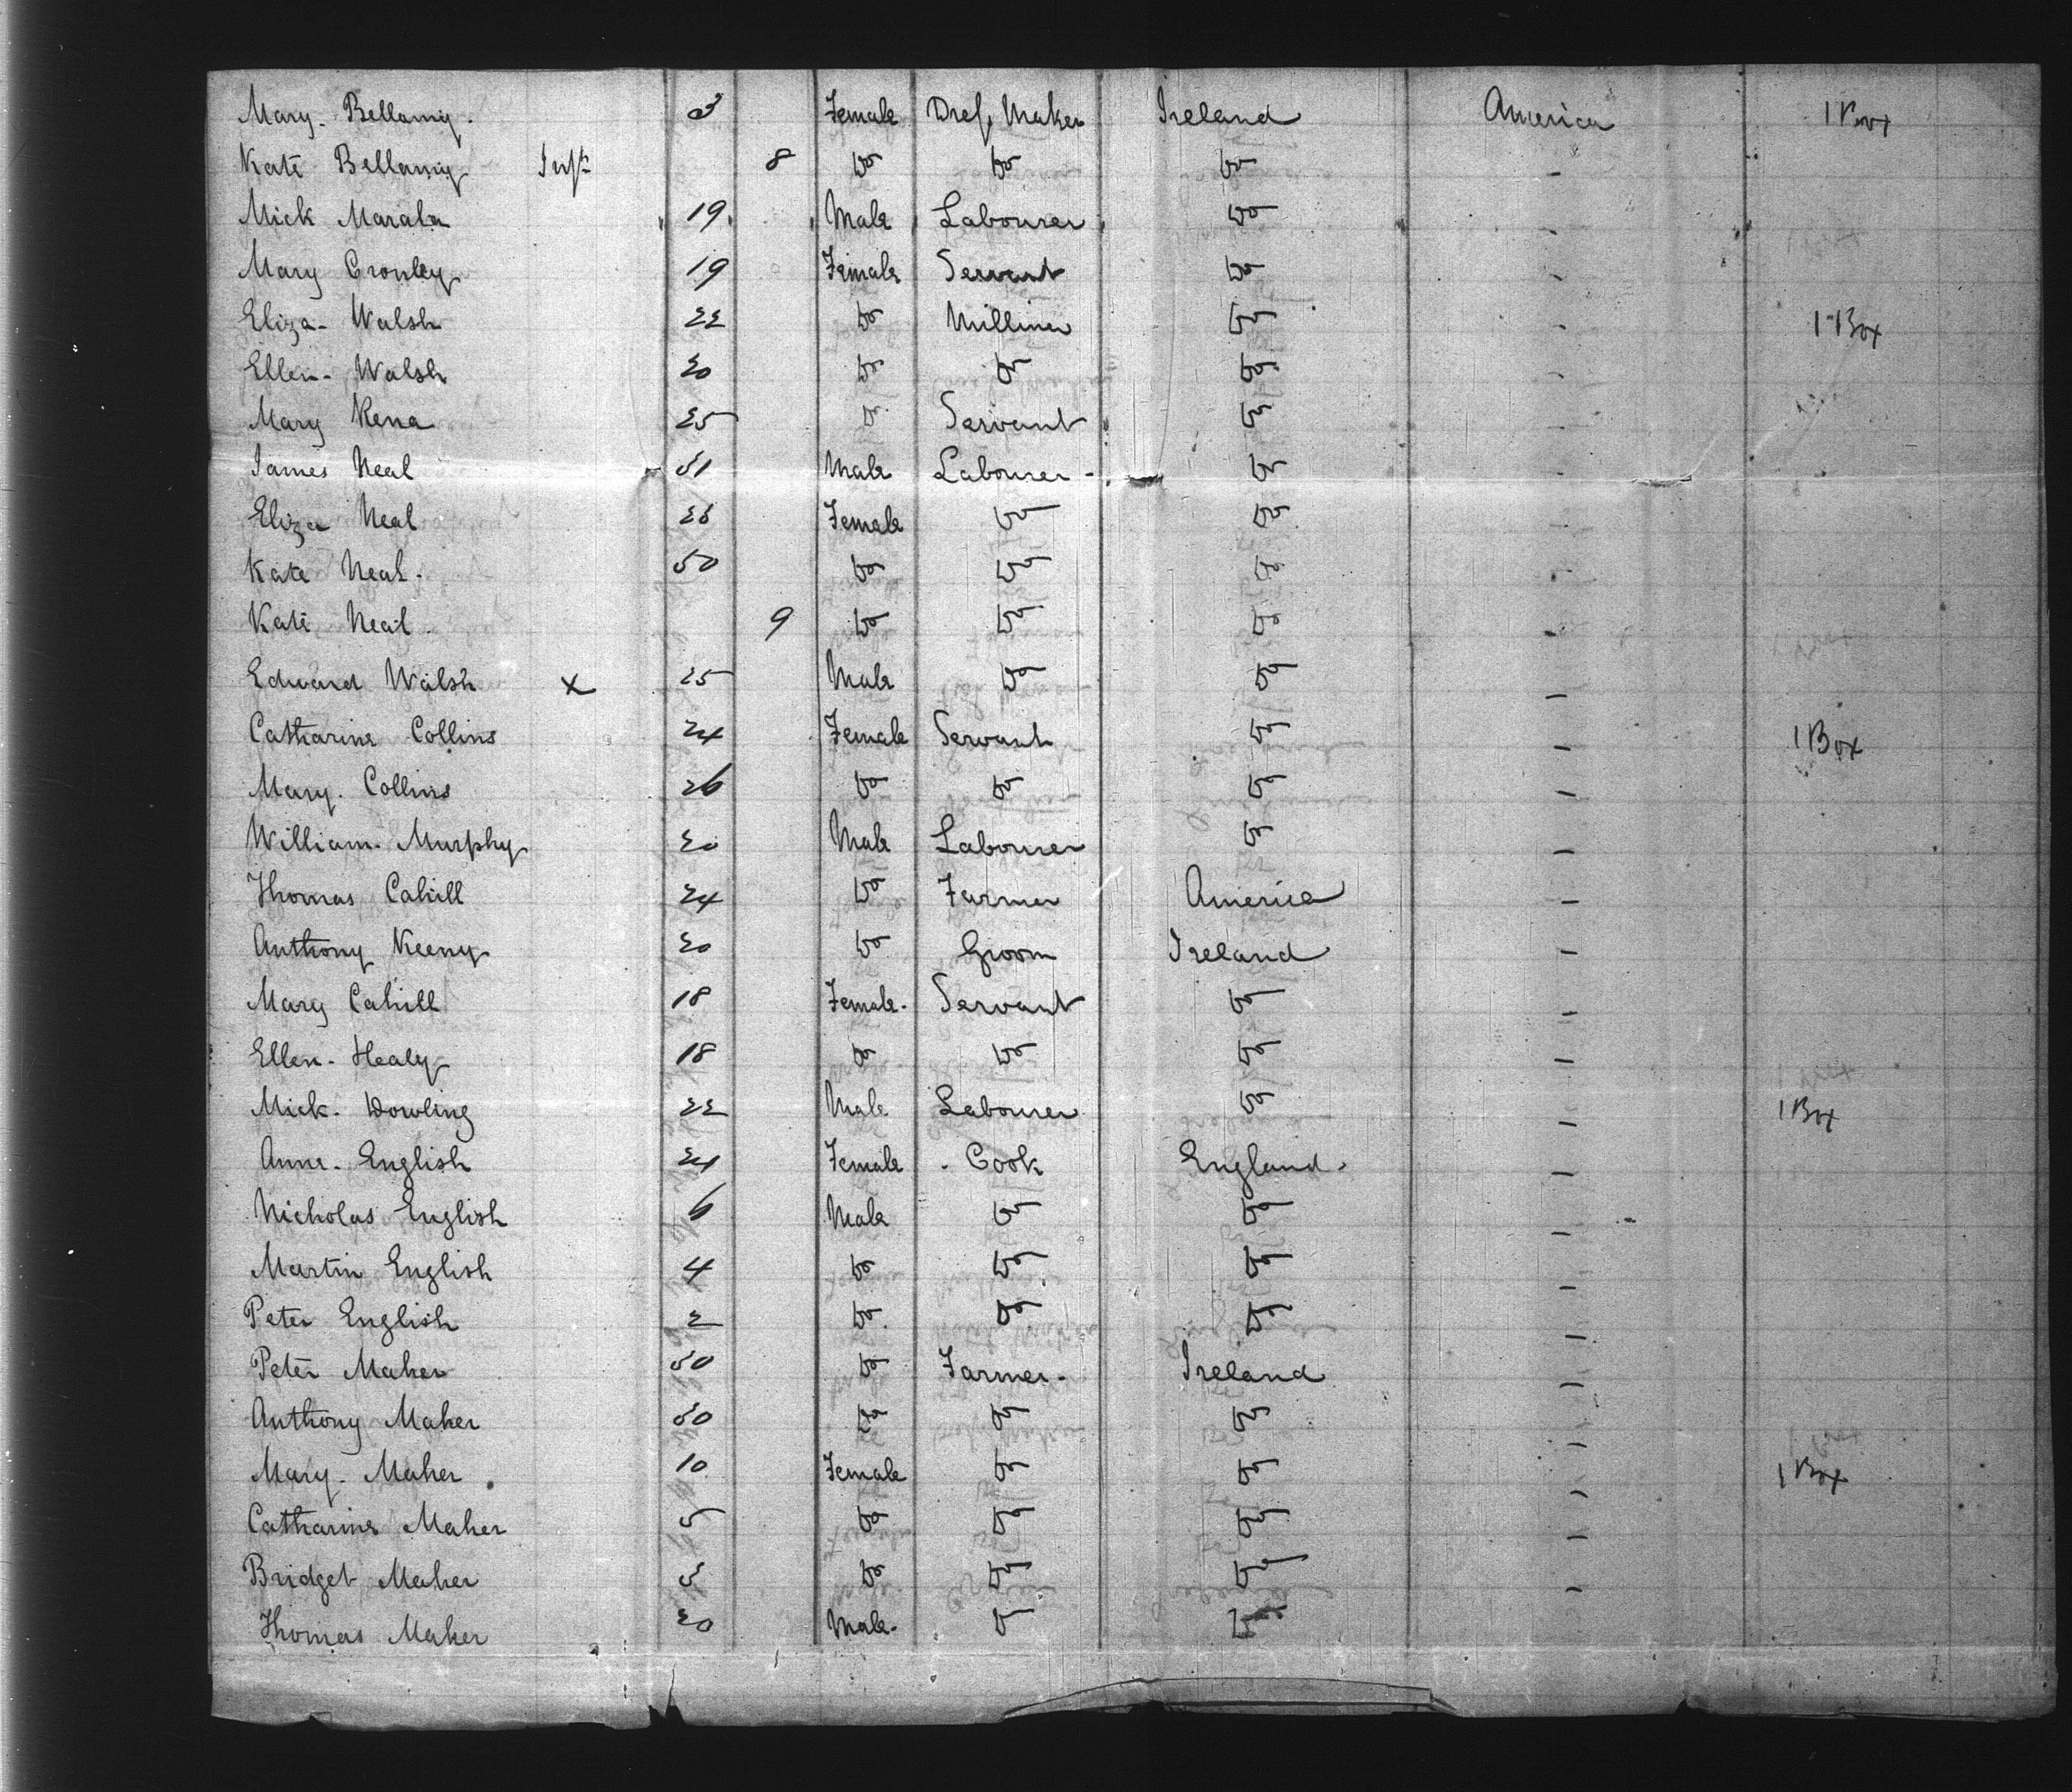 Mary. Bellamy. 3 Female Dress Maker Ireland America 1 Box
Kate Bellamy Inft 8 Do Do Do -
Mick Marala 19 Male Labourer Do -
Mary Cronley 19 Female Servant Do -
Eliza Walsh 22 Do Milliner Do - 1 Box
Ellen Walsh 20 Do Do Do -
Mary Kena 25 Do Servant Do -
James Neal 31 Male Labourer Do -
Eliza Neal Female Do Do -
Kate Neal. 50 Do Do Do -
Kate Neal. 9 Do Do Do -
Edward Walsh x 25 Male Do Do -
Catharine Collins 24 Female Servant Do - 1 Box
Mary. Collins 26 Do Do Do -
William. Murphy 20 Male Labourer Do -
Thomas Cahill 24 Do Farmer America -
Anthony Keeny 20 Do Groom Ireland -
Mary Cahill 18 Female. Servant Do -
Ellen. Healy 18 Do Do Do -
Mick. Dowling 22 Male Labourer Do - 1 Box
Anne. English 24 Female Cook England. -
Nicholas English 6 Male Do Do -
Martin English 4 Do Do Do -
Peter English 2 Do. Do Do -
Peter Maher 50 Do Farmer. Ireland -
Anthony Maher 30 Do Do Do -
Mary. Maher 10 Female Do Do - 1 Box
Catharine Maher 5 Do Do Do -
Bridget Maher 3 Do Do Do -
Thomas Maher 20 Male. Do Do